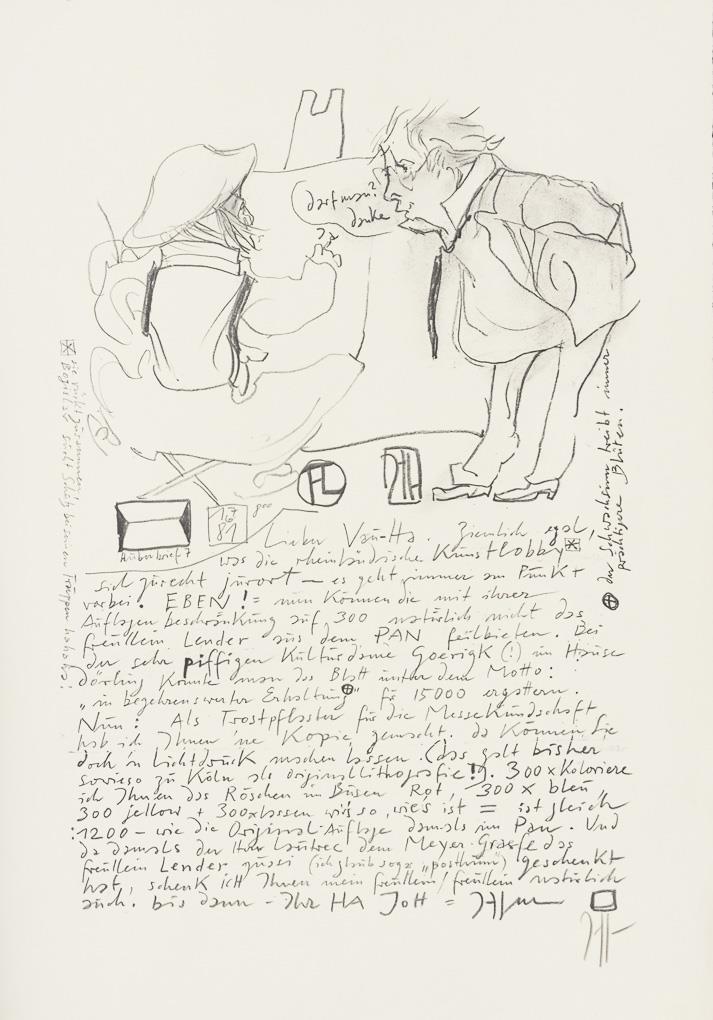 darf man?
danke
ja
FL
17
6
81
goo
Außenbrief 7
Lieber Vau-Ha. Ziemlich egal,
was die rheinländische Kunstlobby
sich zurecht juxt — es geht immer am Punkt
vorbei. EBEN! = nun können die mit ihrer
Auflagenbeschränkung auf 300 natürlich nicht das
freullein Lender aus dem PAN feilbieten. Bei
der sehr piffigen Kulturdame Goerigk (!) im Hause
Dörling konnte man das Blatt unter dem Motto:
"in begehrenswerter Erhaltung" für 15000 ergattern.
Nun: Als Trostpflaster für die Messekundschaft
hab ich Ihnen 'ne Kopie gemacht. da können Sie
doch'n Lichtdruck machen lassen. (das galt bisher
sowieso zu Köln als originallithografie!). 300 x koloriere
ich Ihnen das Röschen im Busen Rot, 300 x bleu,
300 jellow + 300x lassen wirs so, wie's ist = ist gleich
:1200 — wie die Original-Auflage damals im Pan. Und
da damals der Herr Lautrec dem Meyer-Graefe das
freullein Lender quasi (ich glaub sogar "posthum") geschenkt
hat, schenk ich Ihnen mein freullein/freullein natürlich
auch. bis dann - Ihr HA JOTT =
der Schwachsinn treibt immer
prächtigere Blüten.